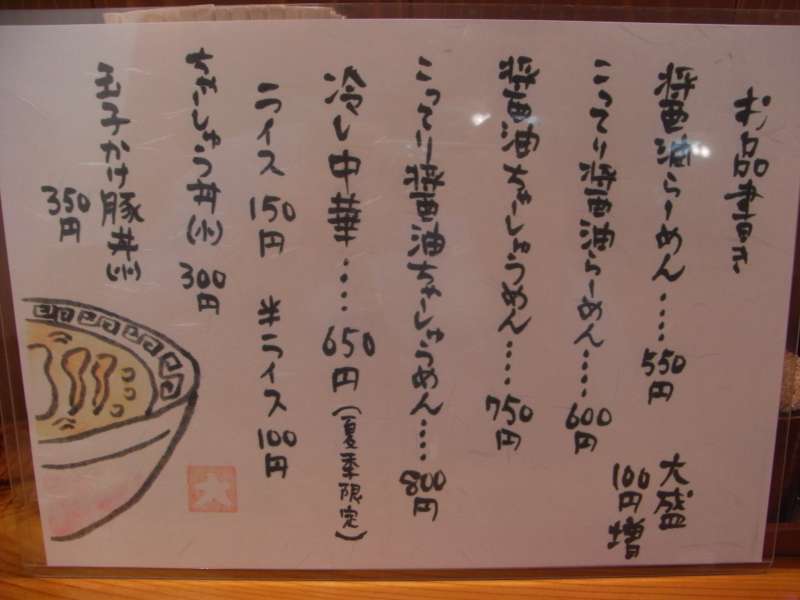 お品書き
醤油らーめん……550円
大盛
100円増
こってり醤油らーめん……600円
醤油ちゃーしゅうめん……750円
こってり醤油ちゃーしゅうめん……800円
冷し中華……650円(夏季限定)
ライス 150円 半ライス 100円
ちゃーしゅう丼(小) 300円
玉子かけ豚丼(小)
350円
大